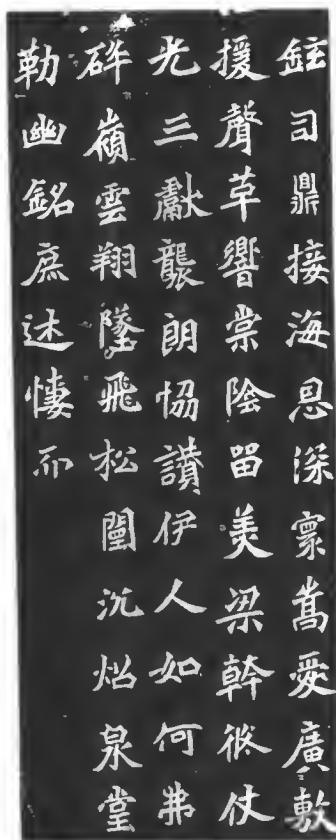 鉉司鼎接海恩深寮嵩愛廣敷
援聲草響棠陰留美梁幹攸仗
光三獻襲朗協讚伊人如何弗
砕嶺雲翔墜飛松沉焰泉堂
勒幽銘庶述悽而